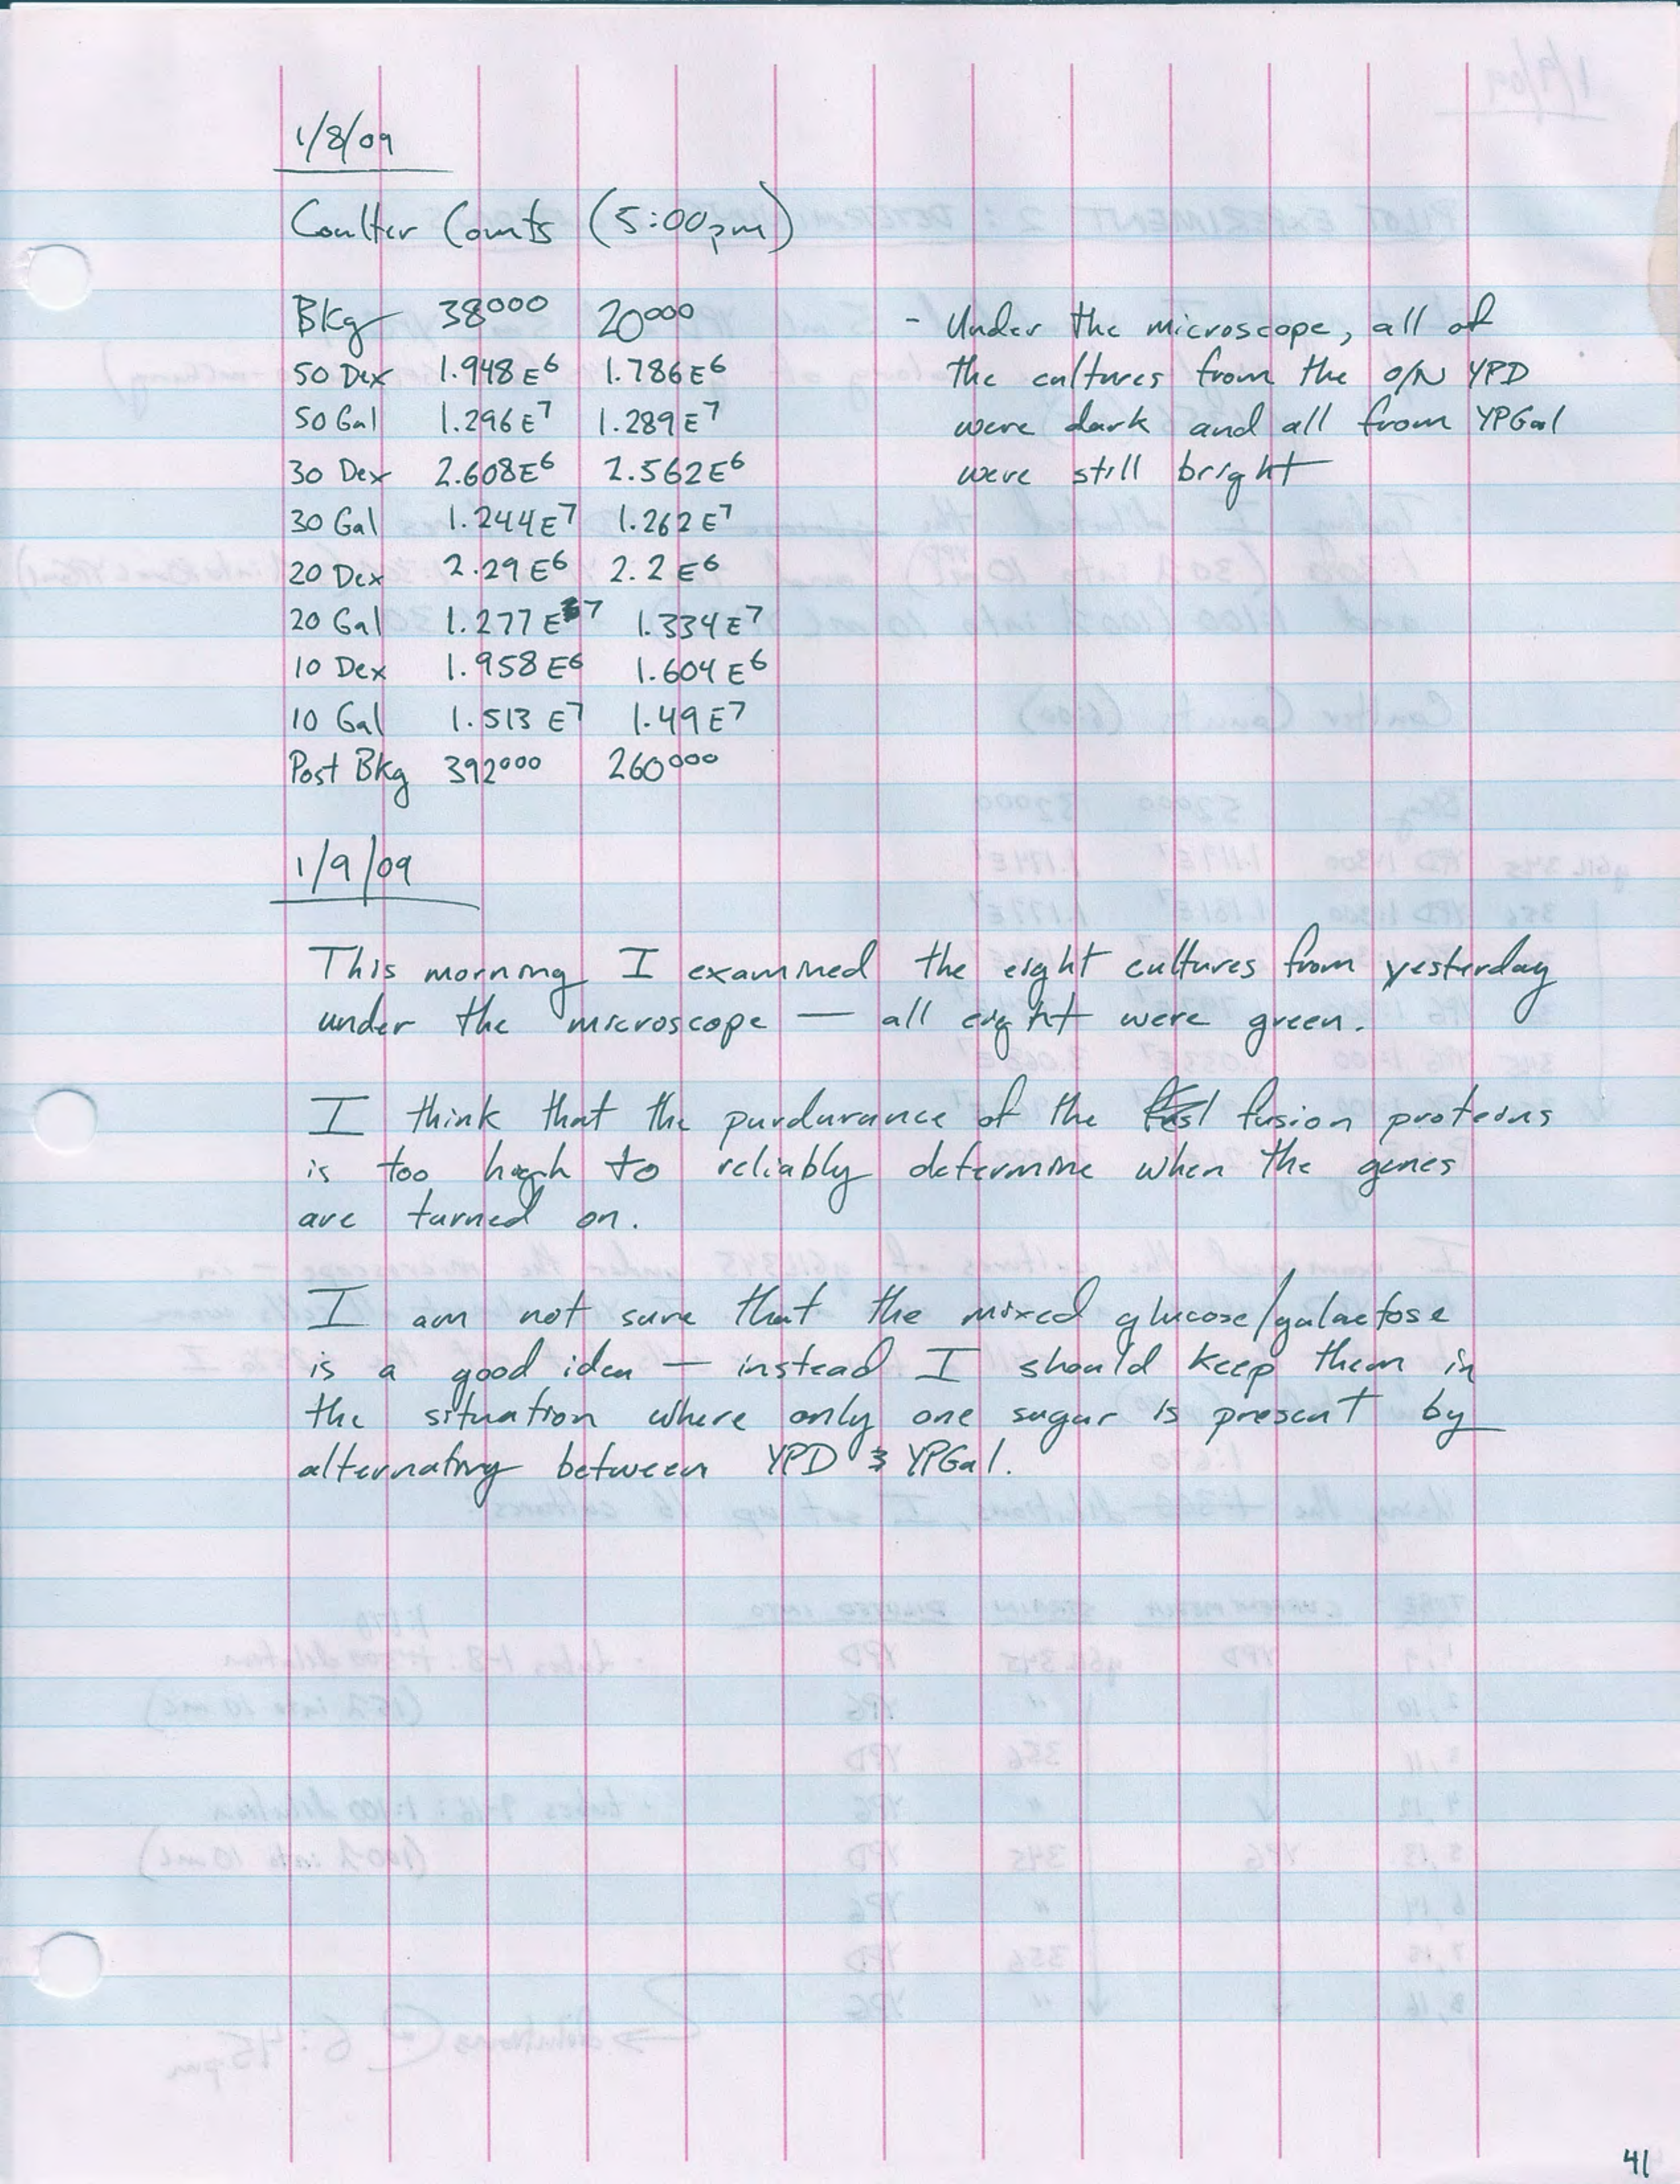 1/8/09
Coulter Counts (5:00pm)
Bkg 38000 20000
50 Dex 1.948E6 1.786E6
50 Gal 1.296E7 1.289E7
30 Dex 2.608E6 2.562E6
30 Gal 1.244E7 1.262E7
20 Dex 2.29E6 2.2E6
20 Gal 1.277E7 1.334E7
10 Dex 1.958E6 1.604E6
10 Gal 1.513E7 1.49E7
Post Bkg 392000 260000
- Under the microscope, all of
the cultures from the O/N YPD
were dark and all from YPGal
were still bright
1/9/09
This morning I examined the eight cultures from yesterday
under the microscope — all eight were green.
I think that the purdurance of the fusion proteins
is too high to reliably determine when the genes
are turned on.
I am not sure that the mixed glucose/galactose
is a good idea — instead I should keep them in
the situation where only one sugar is present by
alternating between YPD & YPGal.
41